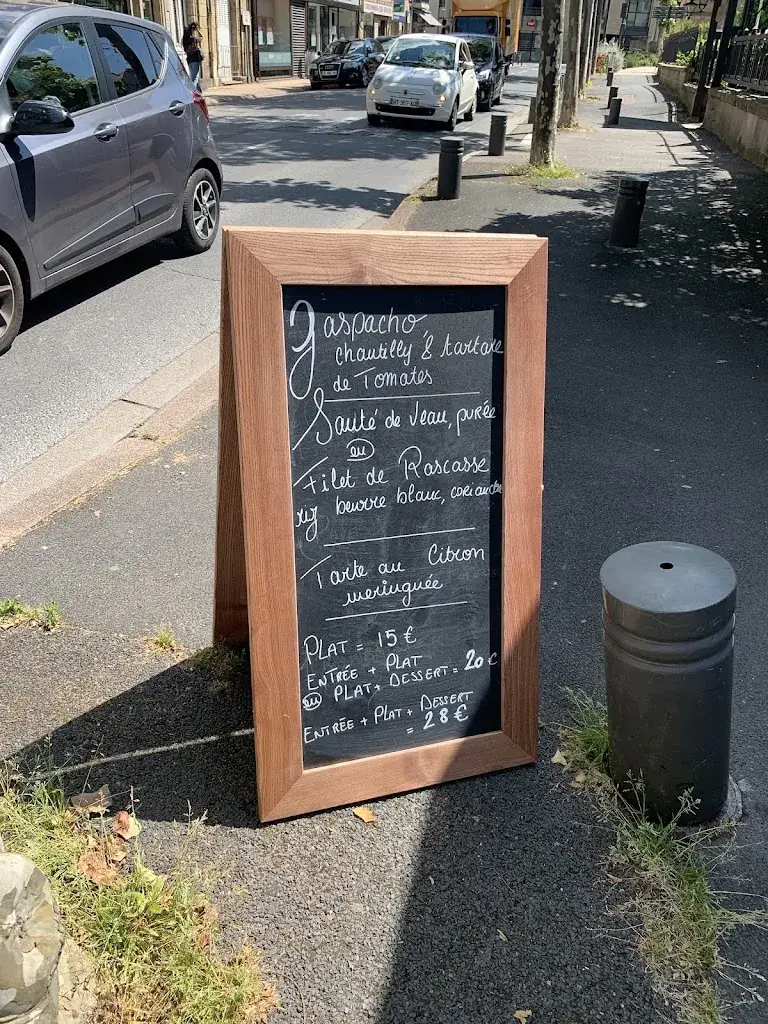 Gaspacho,
chantilly & tartare
de Tomates
Sauté de Veau, purée
ou
Filet de Rascasse
riz beurre blanc, coriandre
Tarte au Citron
meringuée
PLAT = 15 €
ENTRÉE + PLAT
ou PLAT + DESSERT = 20 €
ENTRÉE + PLAT + DESSERT
= 28 €